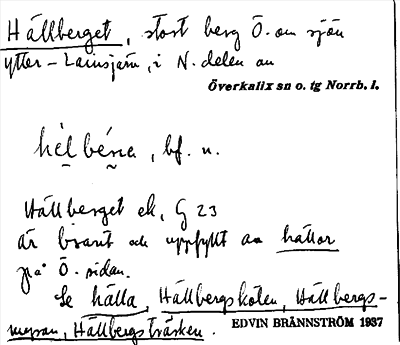 Hällberget, stort berg Ö. om sjön
ytter-Lainsjärv, i N. delen av
Överkalix sn o. tg Norrb. l.
hèl bérıa, bf. n.
Hällberget ek, G 23
är brant och uppfyllt av hällor
på Ö. sidan.
Se hälla, Hällbergskölen, Hällbergs-
myran, Hällbergsträsken.
EDVIN BRÄNNSTRÖM 1937